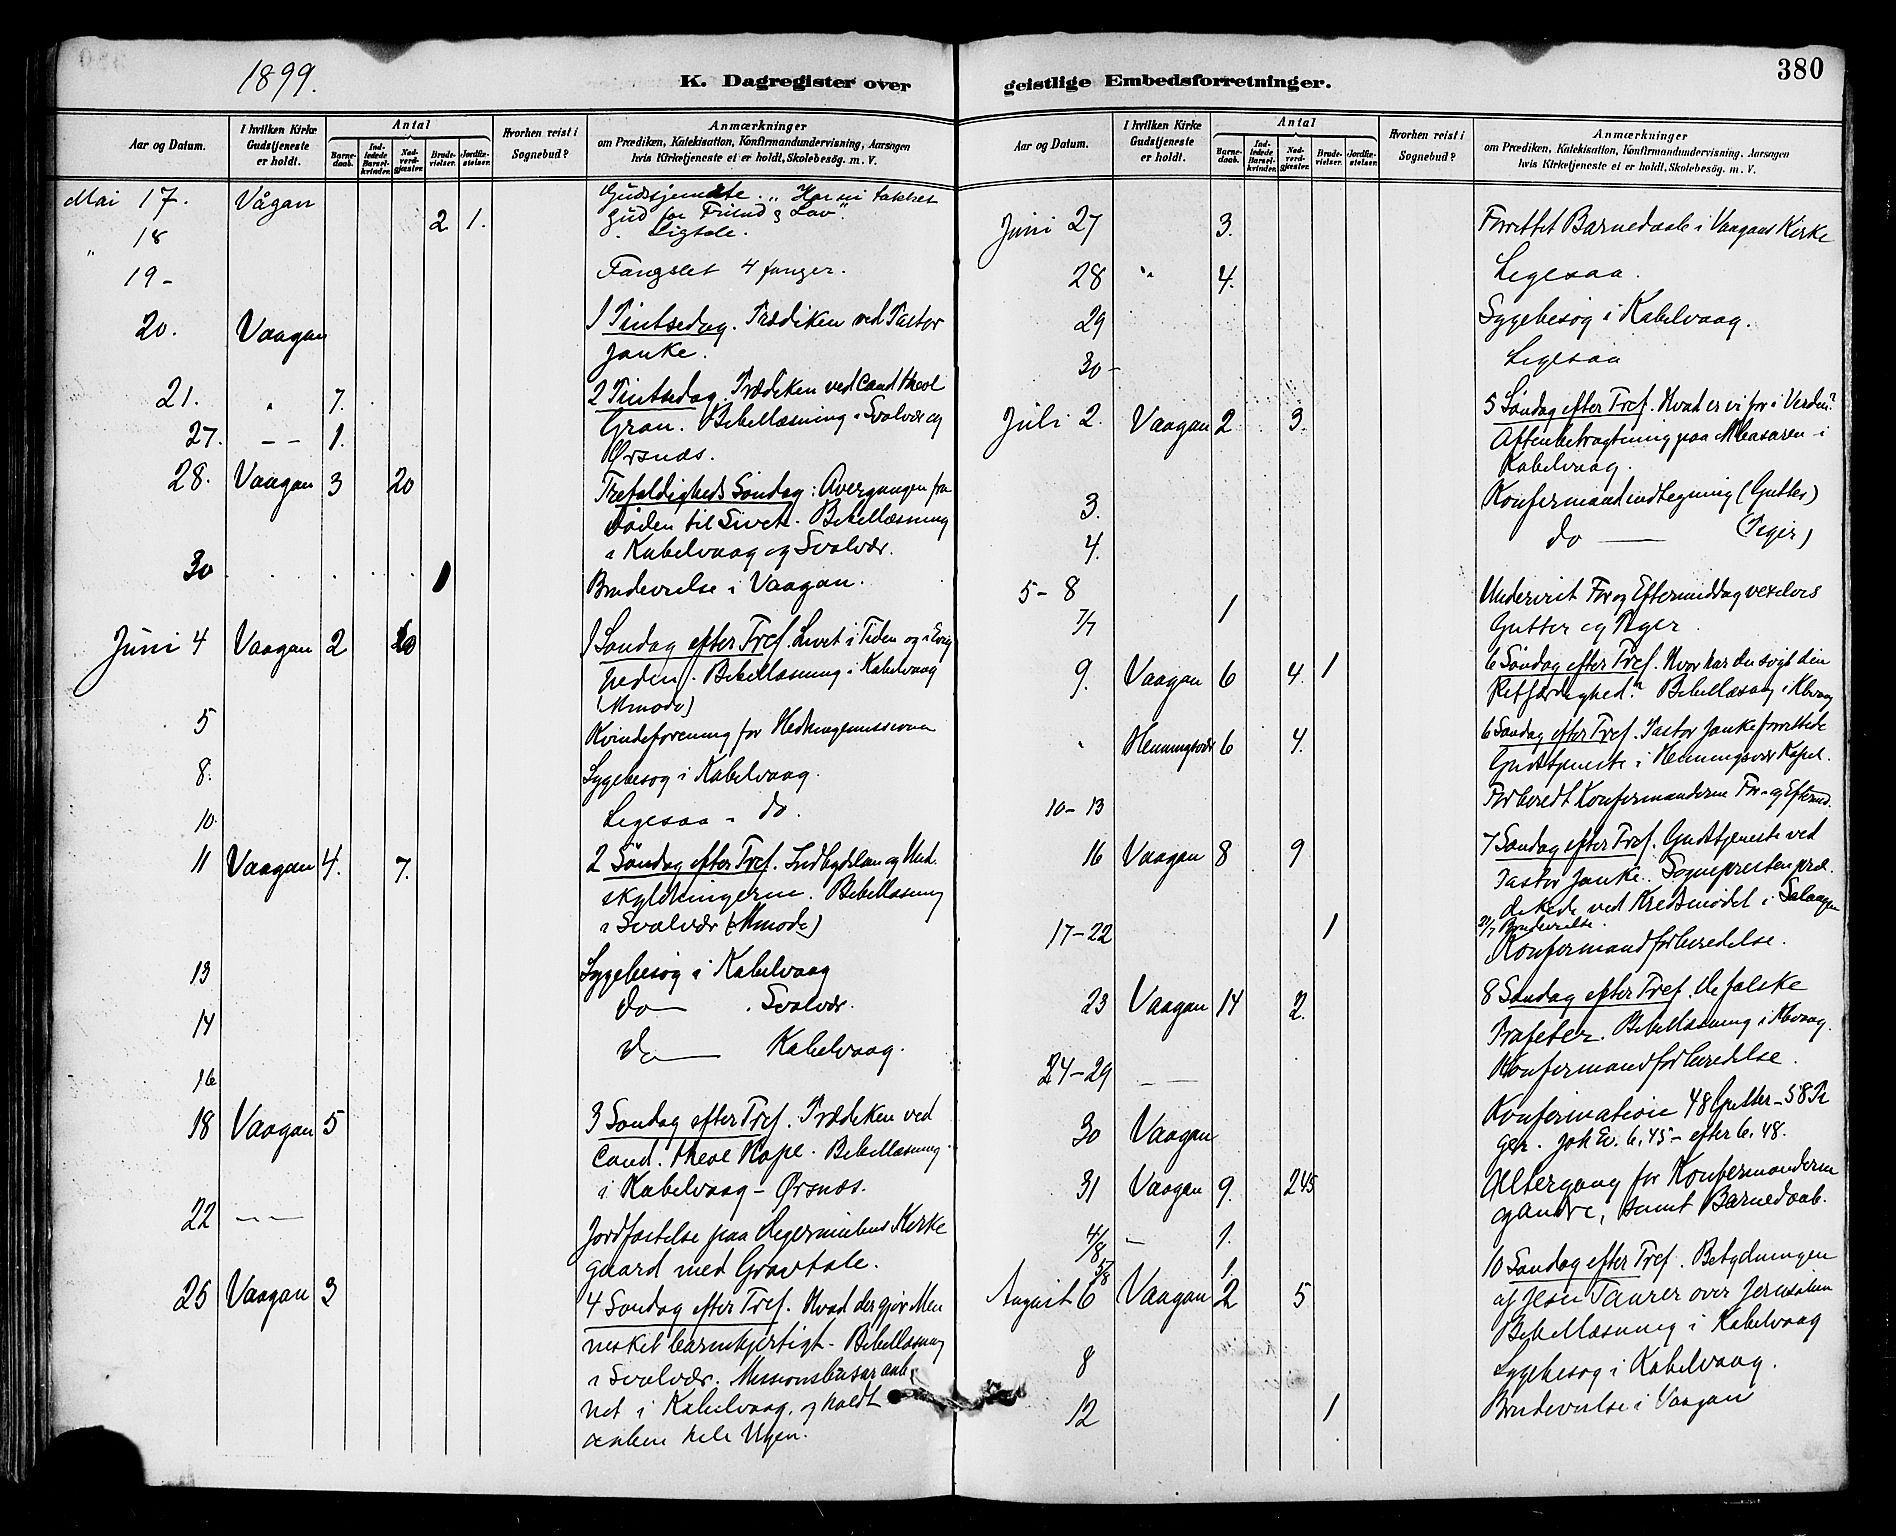 1899.
K. Dagregister over
Aar og Datum.
I hvilken Kirke Gudstjeneste er holdt.
Antal
Barnedaab.
Indledede Barselkvinder.
Nadverdgjester.
Brudevielser.
Jordfæstelser.
Hvorhen reist i Sognebud?
Anmærkninger
om Prædiken, Katekisation, Konfirmandundervisning, Aarsagen
hvis Kirketjeneste ei er holdt, Skolebesøg. m. V.
Mai 17. Vågan 2 1. Gudstjeneste. "Har vi takket
Gud for Frihed & Lov".
" 18 Ligtale.
19 - Fangslet 4 fanger.
20. Vaagan 1 Pintsedag. Prædiken ved Pastor
Janke.
21. " 7. 2 Pintsedag. Prædiken ved Cand theol
Gran. Bibellæsning i Svolvær og
27. - - 1. Ørsnæs.
28. Vaagan 3 20 Trefoldigheds Søndag: Overgangen fra
Døden til Livet. Bibellæsning
i Kabelvaag og Svolvær.
30 1 Brudevielse i Vaagan.
Juni 4 Vaagan 2 1 Søndag efter Tref. Livet i Tiden og i Evig
heden. Bibellæsning i Kabelvaag
5 Kvindeforening for Hedningemissionen
8. Sygebesøg i Kabelvaag.
10. Ligesaa - do.
11 Vaagan 4. 7. 2 Søndag efter Tref. Indbydelsen og Und-
skyldningerne. Bibellæsning
i Svolvær
13 Sygebesøg i Kabelvaag
14 do Svolvær.
16 do Kabelvaag.
18 Vaagan 5 3 Søndag efter Tref. Prædiken ved
Cand. theol Bibellæsning
i Kabelvaag - Ørsnæs.
22 - - Jordfæstelse paa Kirke
gaard med Gravtale.
25 Vaagan 3 4 Søndag efter Tref. Hvad der gjør Men
nesket barmhjertigt - Bibellæsning
i Svolvær. Missionsbasar aab-
net i Kabelvaag, og holdt
aaben hele Ugen.
geistlige Embedsforretninger.
380
Aar og Datum.
I hvilken Kirke Gudstjeneste er holdt.
Antal
Barnedaab.
Indledede Barselkvinder.
Nadverdgjester.
Brudevielser.
Jordfæstelser.
Hvorhen reist i Sognebud?
Anmærkninger
om Prædiken, Katekisation, Konfirmandundervisning, Aarsagen
hvis Kirketjeneste ei er holdt, Skolebesøg. m. V.
Juni 27 3. Forrettet Barnedaab i Vaagans Kirke
28 " 4. Ligesaa.
29 Sygebesøg i Kabelvaag.
30 - Ligesaa
Juli 2. Vaagan 2 3. 5 Søndag efter Tref. Hvad er vi for i Verden?
Aftenbetragtning paa Missaren i
Kabelvaag.
3. Konfirmandindtegning (Gutter)
4. do (Piger)
5 - 8 Undervist For og Eftermiddag vexelvis
7/7 1 Gutter og Piger.
9. Vaagan 6 4. 1 6 Søndag efter Tref. Hvor har du søgt din
Retfærdighed? Bibellæsning i Kbvaag
" Henningsvær 6 4. 6 Søndag efter Tref. Pastor Janke forrettede
Gudstjeneste i Henningsvær Kapel.
10 - 13 Forberedt Konfirmanderne For- og Efterm.
16 Vaagan 8 9 7 Søndag efter Tref. Gudstjeneste ved
Pastor Janke. Sognepresten præ-
dikede ved Kredsmødet i
21/7 Brudevielse.
17 - 22 1 Konfirmandforberedelse.
23 Vaagan 14 2. 8 Søndag efter Tref. De falske
Profeter. Bibellæsning i Kbvaag.
24 - 29 - - Konfirmandforberedelse.
30 Vaagan Konfirmation 48 Gutter - 58 Pi
ger. Joh Ev. 6, 45 - efter 6, 48.
31 Vaagan 9. 245 Altergang for Konfirmanderne
og andre, samt Barnedaab.
4/8 - 1.
5/8 1.
August 6 Vaagan 2 5 10 Søndag efter Tref. Betydningen
af Jesu Taarer over Jerusalem
Bibellæsning i Kabelvaag
8 Sygebesøg i Kabelvaag.
12 1 Brudevielse i Vaagan